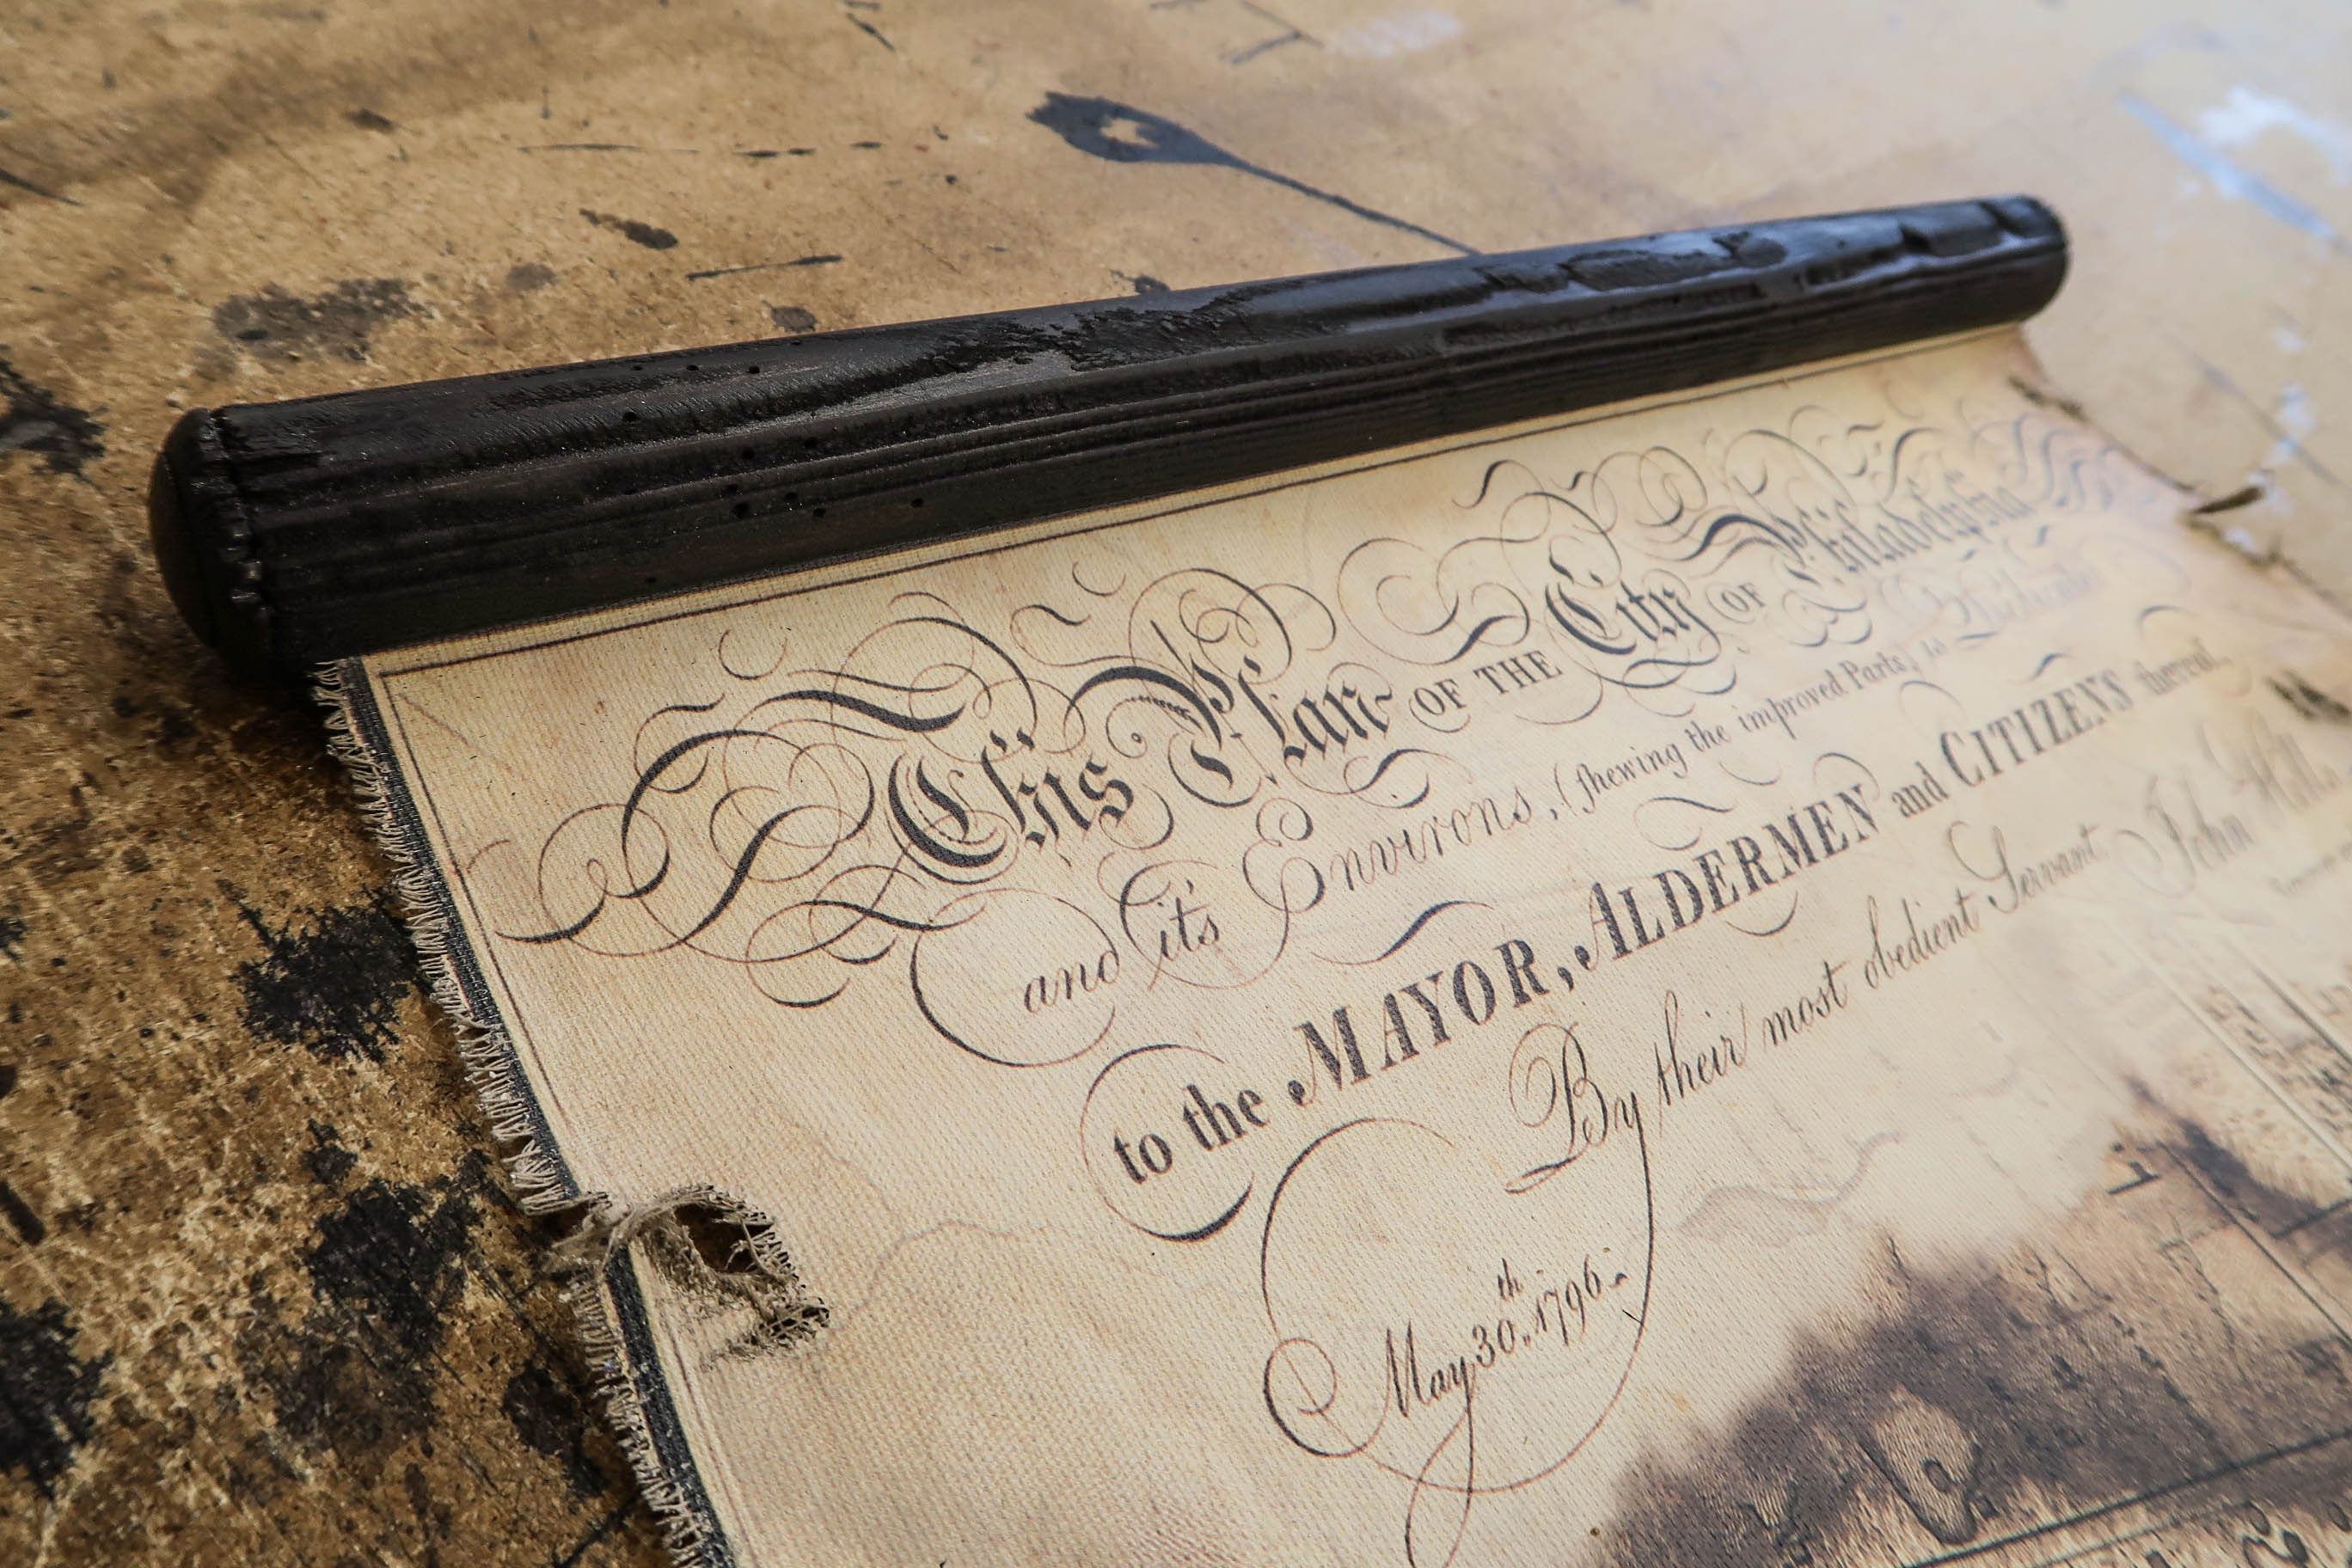 This Plan OF THE City OF Philadelphia
and it's Environs, (shewing the improved Parts,) is Dedicated
to the MAYOR, ALDERMEN and CITIZENS thereof
By their most obedient Servant, John Hills,
May 30th. 1796.